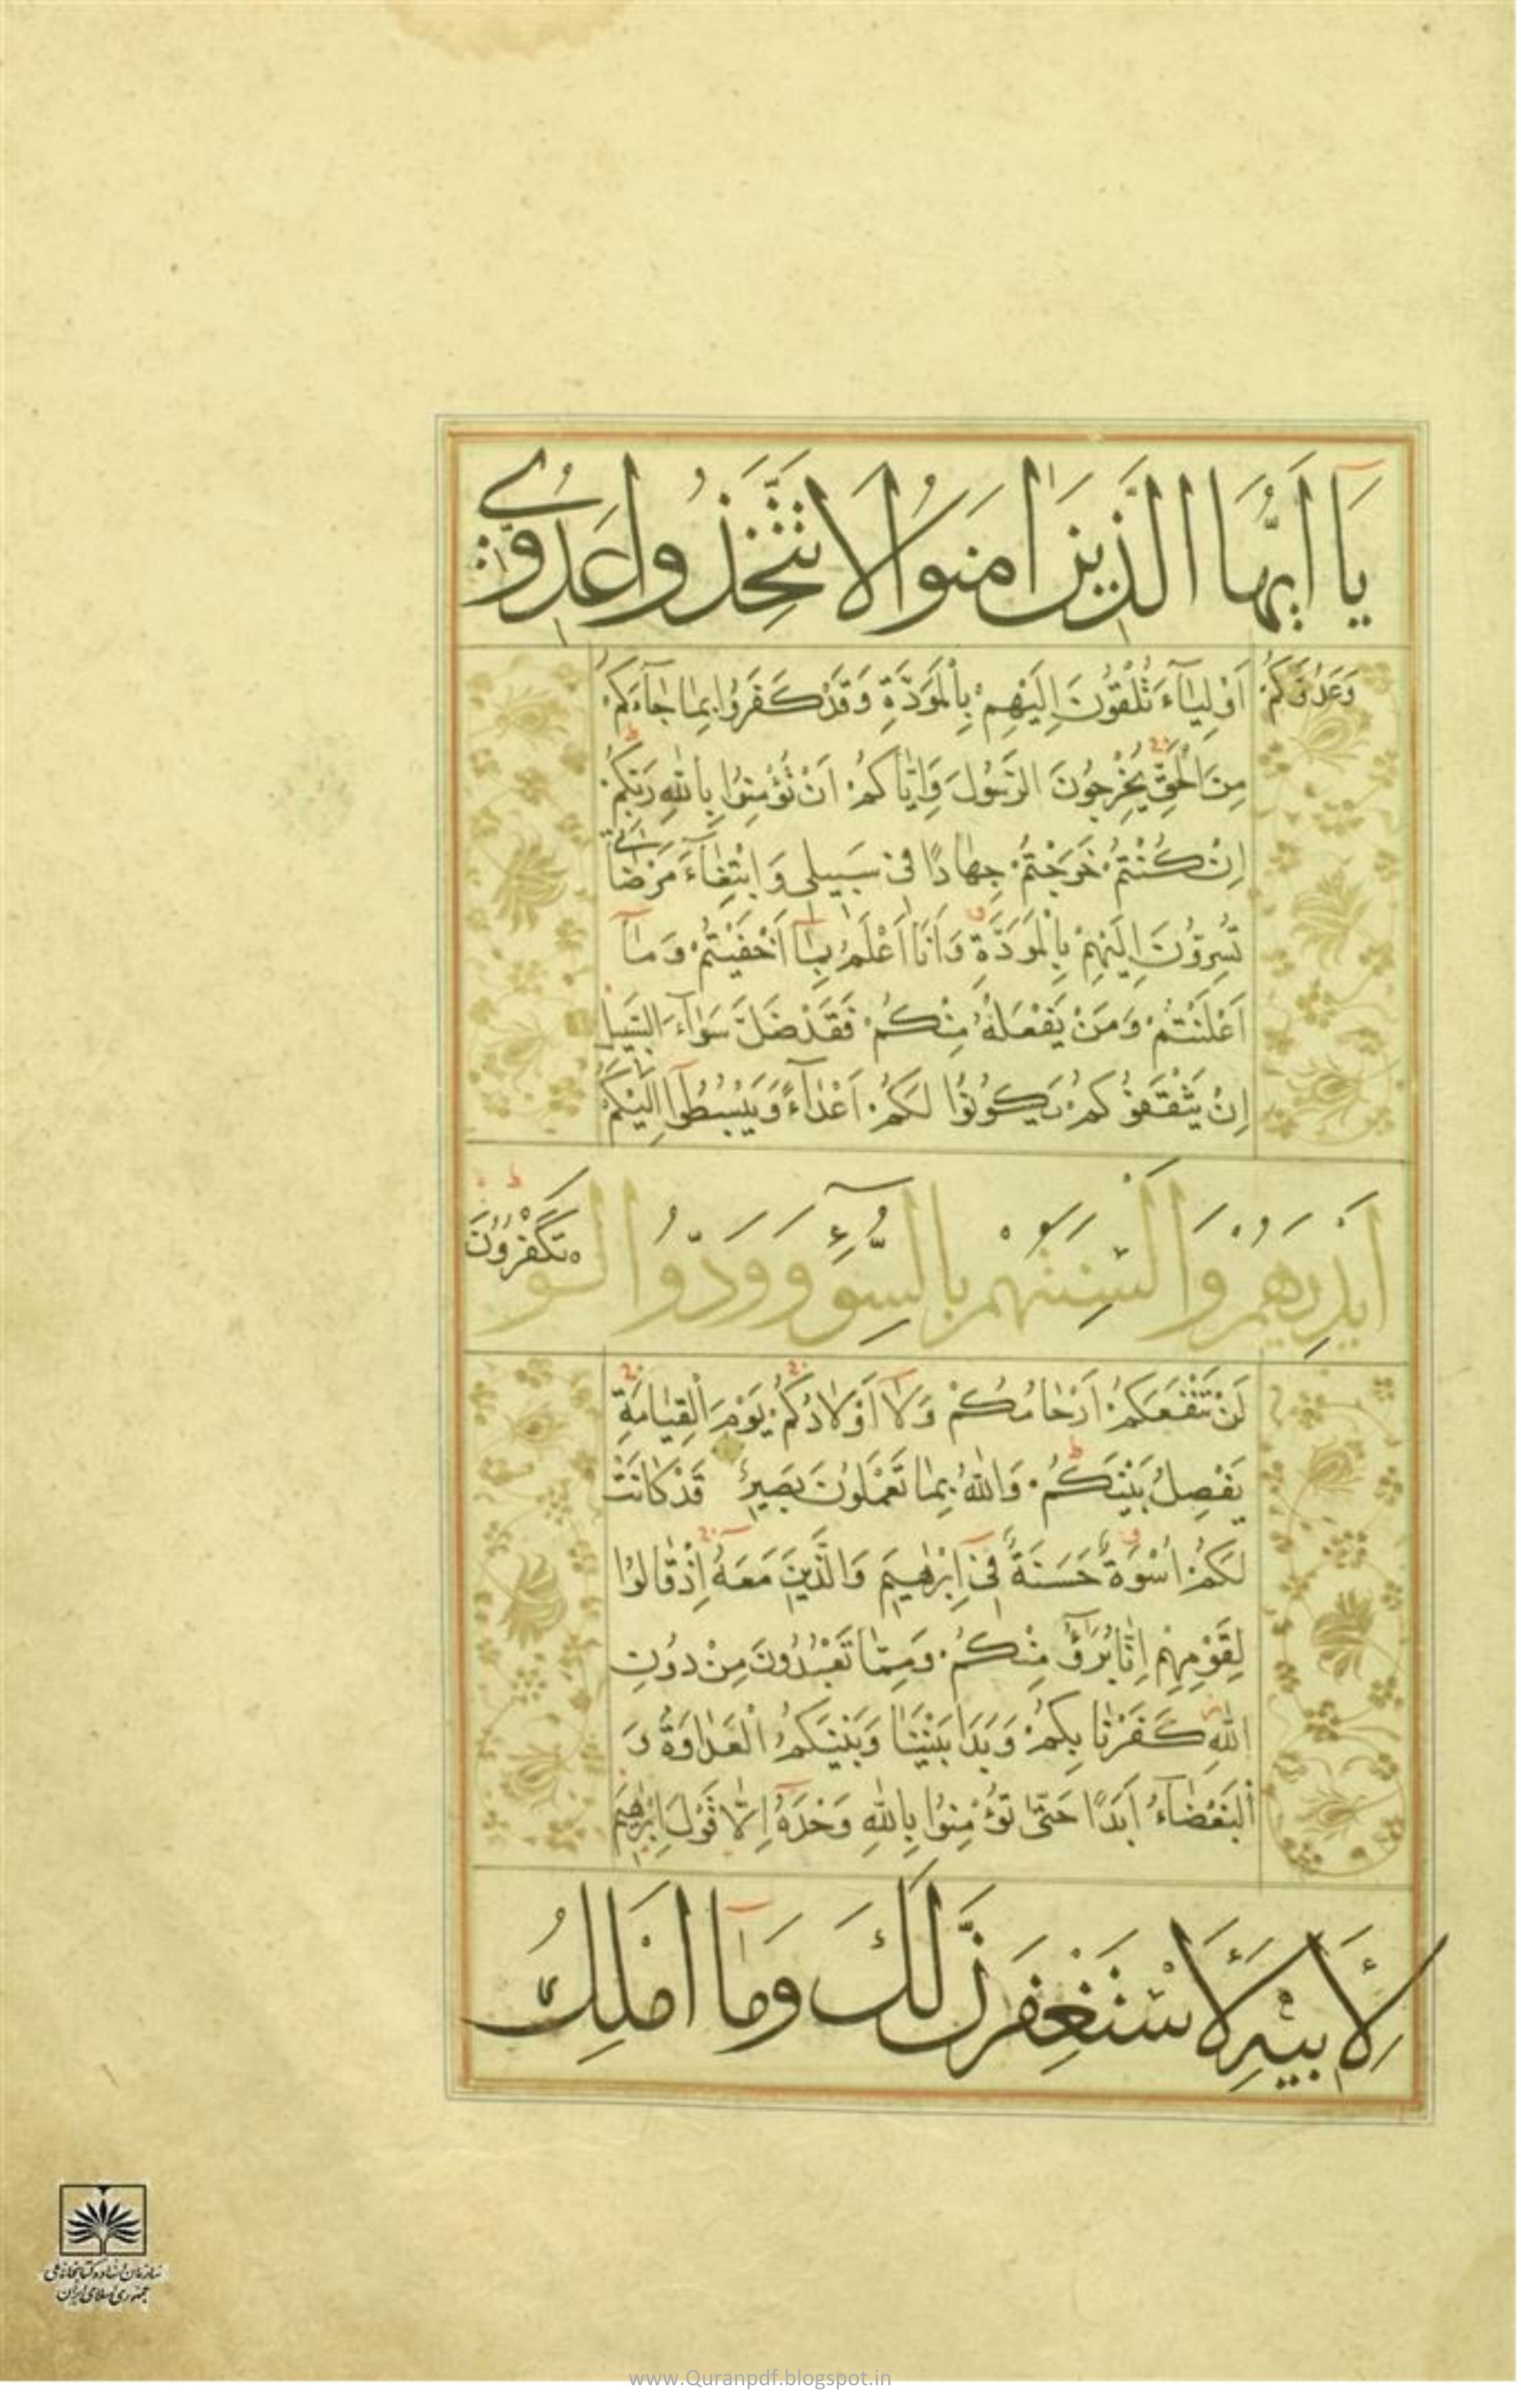 يَا اَيُّهَا الَّذِينَ اٰمَنُوا لَا تَتَّخِذُوا عَدُوِّي
وَعَدُوَّكُمْ اَوْلِيَاءَ تُلْقُونَ اِلَيْهِمْ بِالْمَوَدَّةِ وَقَدْ كَفَرُوا بِمَا جَآءَكُمْ
مِنَ الْحَقِّ يُخْرِجُونَ الرَّسُولَ وَاِيَّاكُمْ اَنْ تُؤْمِنُوا بِاللّٰهِ رَبِّكُمْ
اِنْ كُنْتُمْ خَرَجْتُمْ جِهَادًا فِي سَبِيلِي وَابْتِغَآءَ مَرْضَاتِي
تُسِرُّونَ اِلَيْهِمْ بِالْمَوَدَّةِ وَاَنَا اَعْلَمُ بِمَا اَخْفَيْتُمْ وَمَآ
اَعْلَنْتُمْ وَمَنْ يَفْعَلْهُ مِنْكُمْ فَقَدْ ضَلَّ سَوَآءَ السَّبِيلِ
اِنْ يَثْقَفُوكُمْ يَكُونُوا لَكُمْ اَعْدَآءً وَيَبْسُطُوا اِلَيْكُمْ
اَيْدِيَهُمْ وَاَلْسِنَتَهُمْ بِالسُّوءِ وَوَدُّوا لَوْ تَكْفُرُونَ
لَنْ تَنْفَعَكُمْ اَرْحَامُكُمْ وَلَا اَوْلَادُكُمْ يَوْمَ الْقِيَامَةِ
يَفْصِلُ بَيْنَكُمْ وَاللّٰهُ بِمَا تَعْمَلُونَ بَصِيرٌ قَدْ كَانَتْ
لَكُمْ اُسْوَةٌ حَسَنَةٌ فِي اِبْرٰهِيمَ وَالَّذِينَ مَعَهُ اِذْ قَالُوا
لِقَوْمِهِمْ اِنَّا بُرَءٰٓؤُا مِنْكُمْ وَمِمَّا تَعْبُدُونَ مِنْ دُونِ
اللّٰهِ كَفَرْنَا بِكُمْ وَبَدَا بَيْنَنَا وَبَيْنَكُمُ الْعَدَاوَةُ وَ
الْبَغْضَآءُ اَبَدًا حَتّٰى تُؤْمِنُوا بِاللّٰهِ وَحْدَهُ اِلَّا قَوْلَ اِبْرٰهِيمَ
لِاَبِيهِ لَاَسْتَغْفِرَنَّ لَكَ وَمَآ اَمْلِكُ
سازمان اسناد و کتابخانه ملی
جمهوری اسلامی ایران
www.Quranpdf.blogspot.in